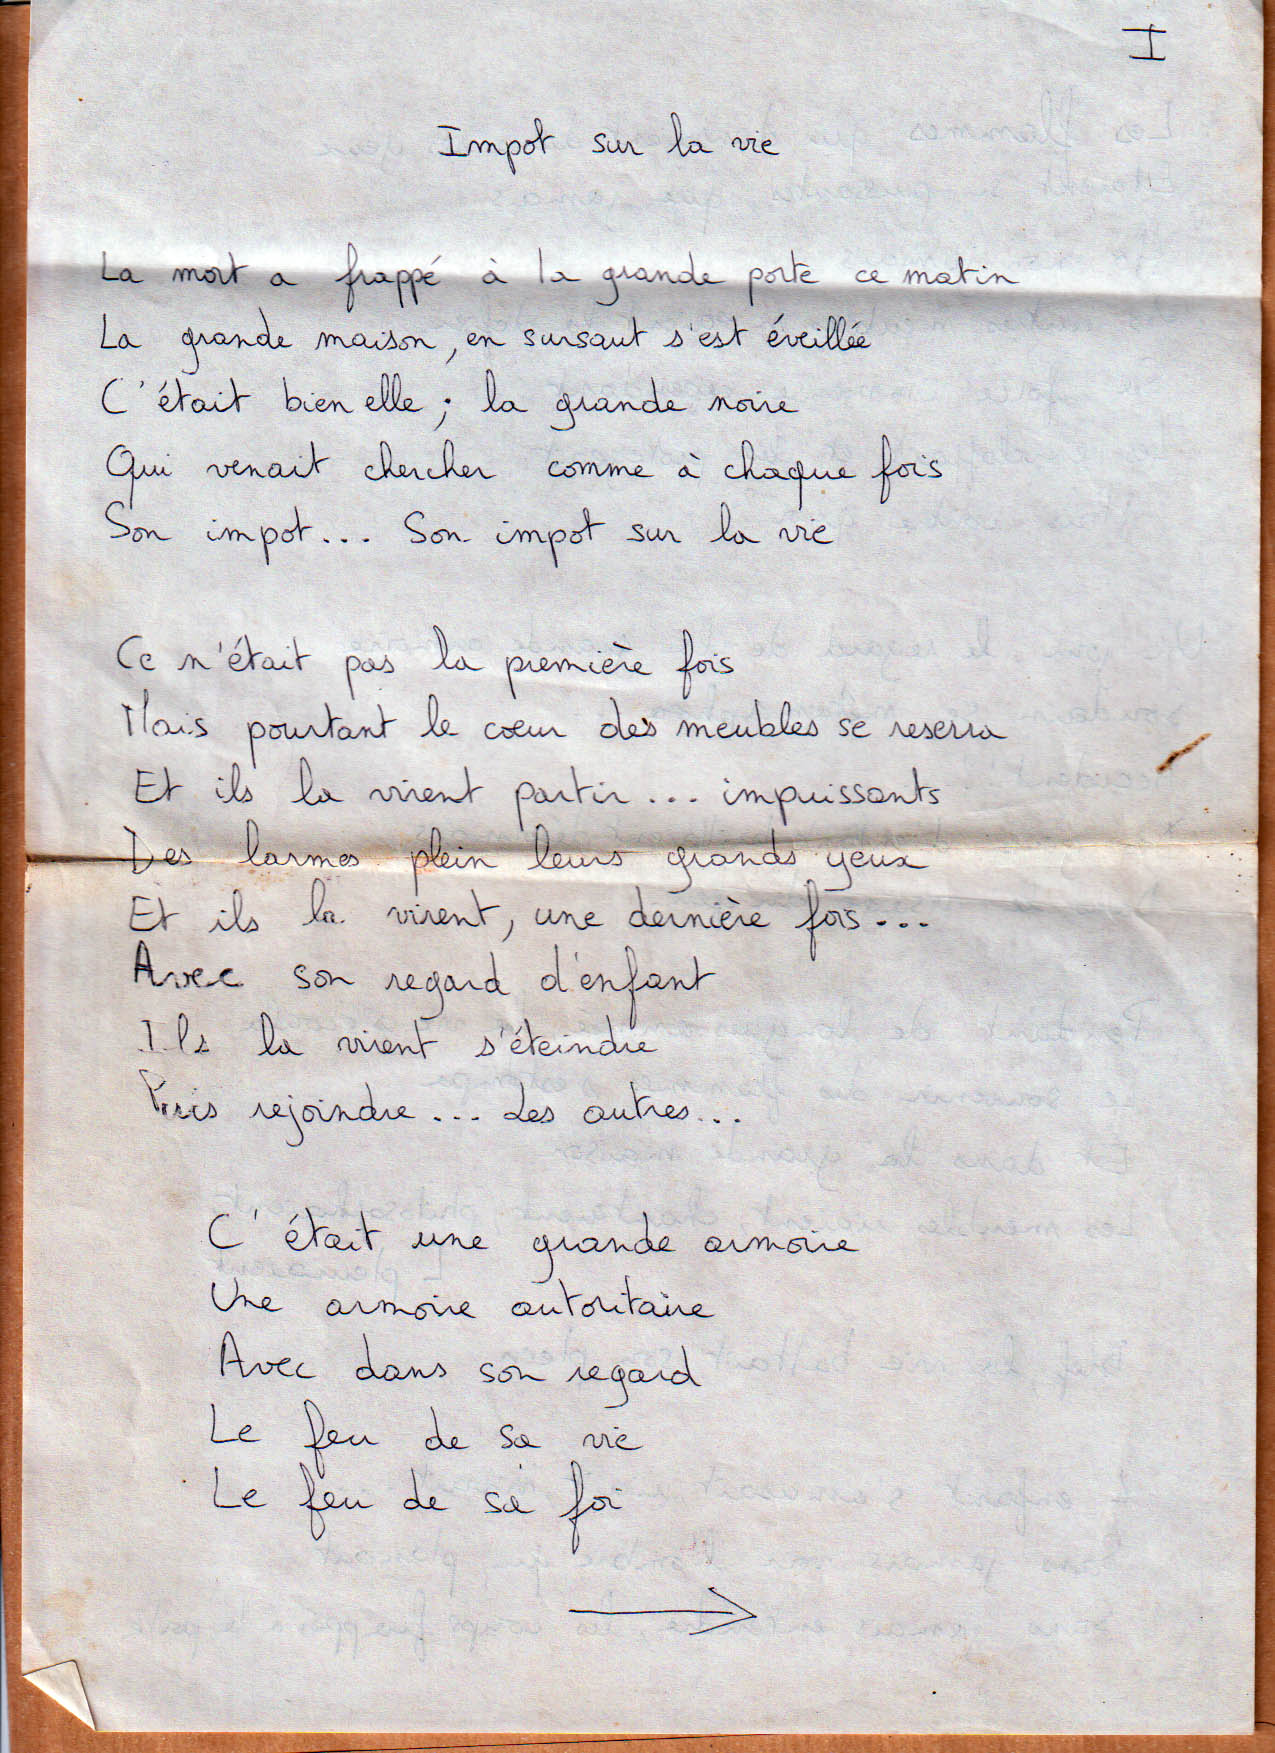 I
Impot sur la vie
La mort a frappé à la grande porte ce matin
La grande maison, en sursaut s'est éveillée
C'était bien elle ; la grande noire
Qui venait chercher comme à chaque fois
Son impot... Son impot sur la vie
Ce n'était pas la première fois
Mais pourtant le coeur des meubles se reserra
Et ils la virent partir... impuissants
Des larmes plein leurs grands yeux
Et ils la virent, une dernière fois...
Avec son regard d'enfant
Ils la virent s'éteindre
Puis rejoindre... Les autres...
C'était une grande armoire
Une armoire autoritaire
Avec dans son regard
Le feu de sa vie
Le feu de sa foi